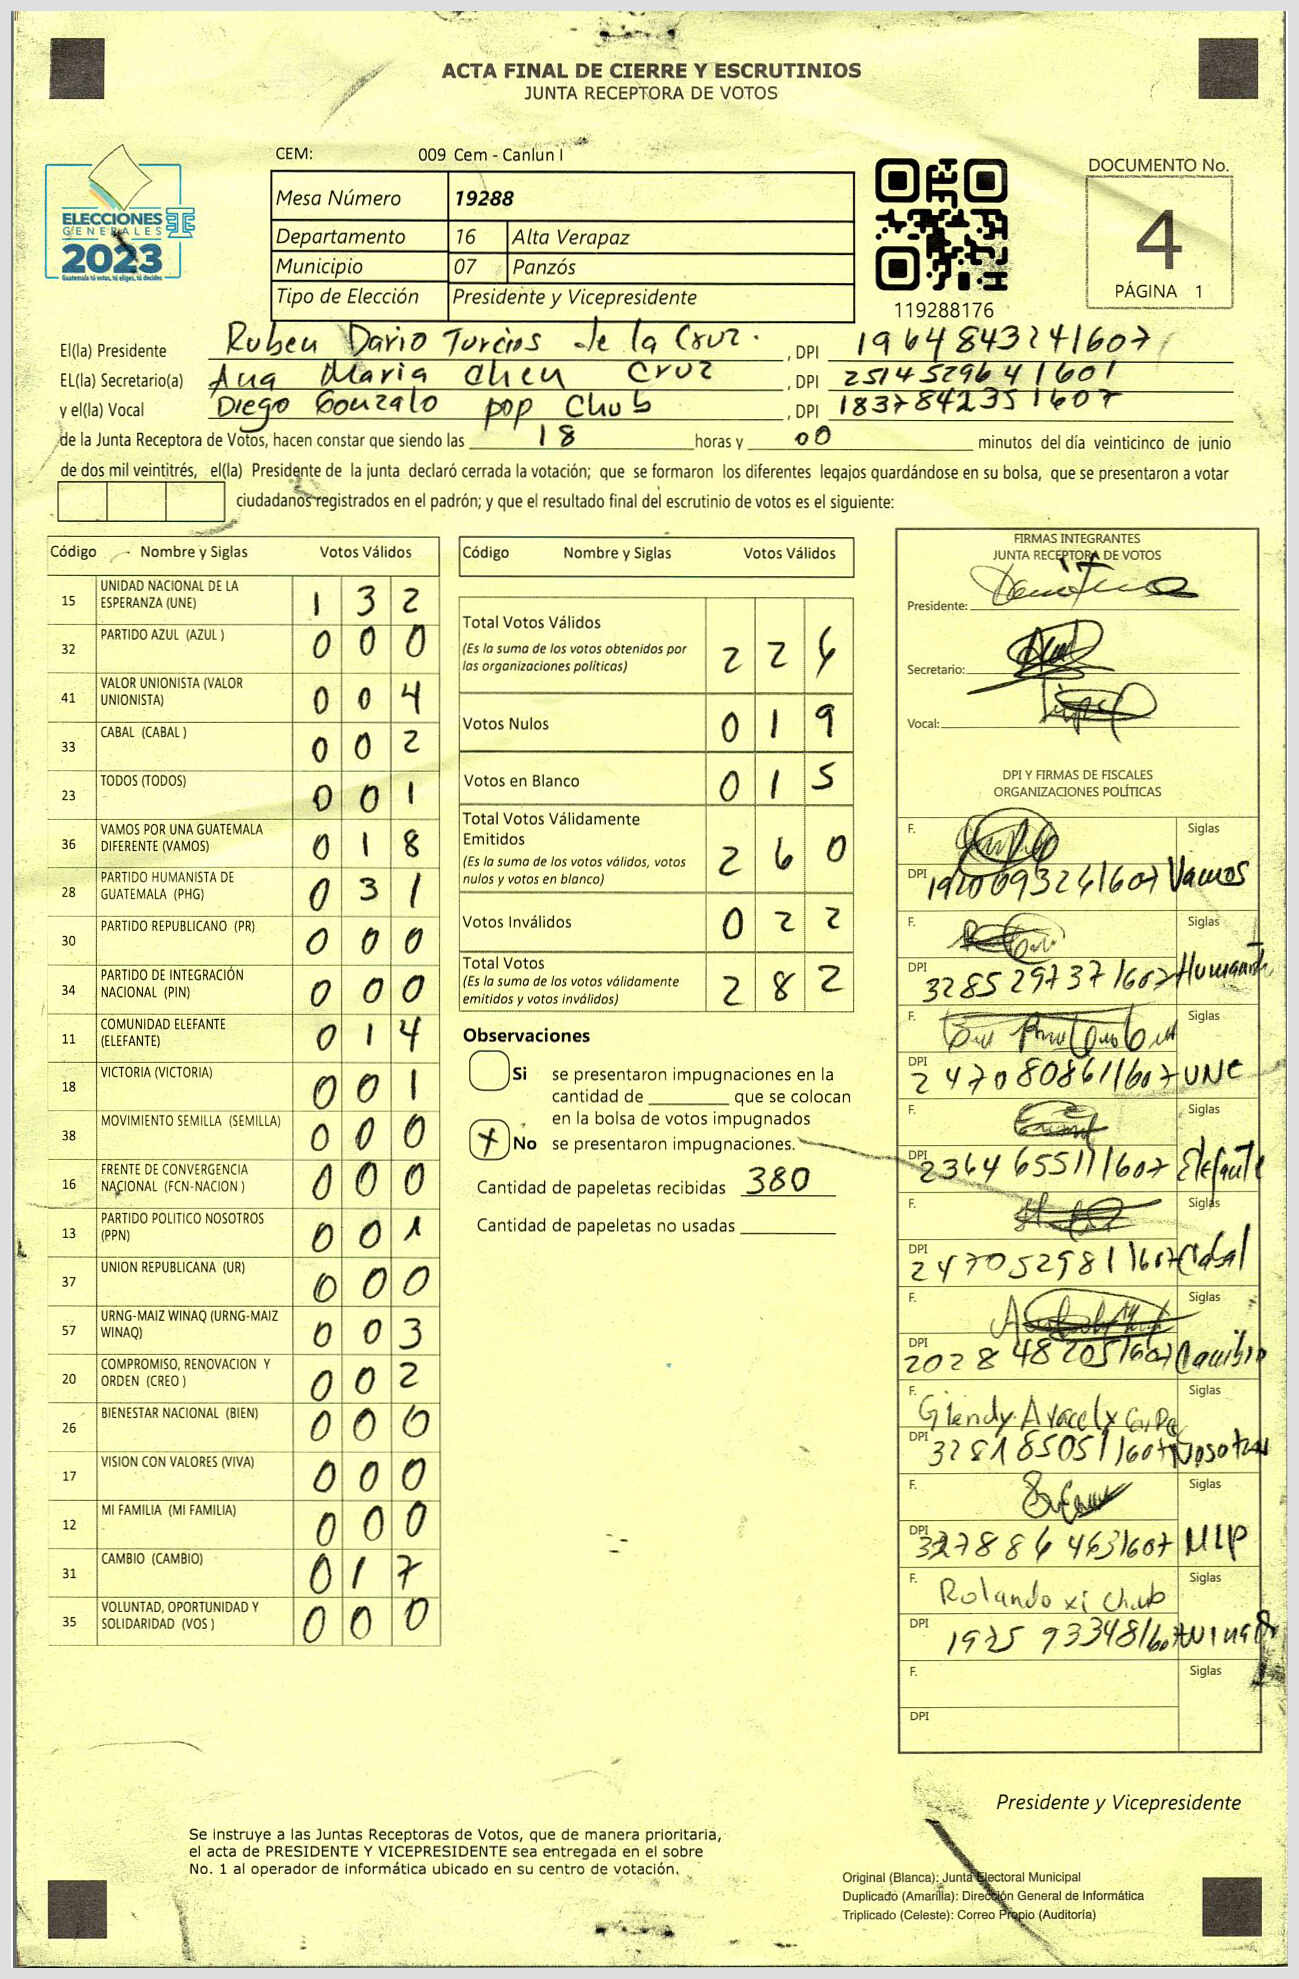 ACTA FINAL DE CIERRE Y ESCRUTINIOS
JUNTA RECEPTORA DE VOTOS
CEM: 009 Cem - Canlun I
ELECCIONES
GENERALES
2023
Guatemala tú votas, tú eliges, tú decides
Mesa Número 19288
Departamento 16 Alta Verapaz
Municipio 07 Panzós
Tipo de Elección Presidente y Vicepresidente
119288176
DOCUMENTO No.
4
PÁGINA 1
El(la) Presidente Ruben Dario Turcios de la Cruz. , DPI 1964843241607
EL(la) Secretario(a) Ana Maria Chen Cruz , DPI 2514529641601
y el(la) Vocal Diego Gonzalo pop Chub , DPI 1837842351607
de la Junta Receptora de Votos, hacen constar que siendo las 18 horas y 00 minutos del día veinticinco de junio
de dos mil veintitrés, el(la) Presidente de la junta declaró cerrada la votación; que se formaron los diferentes legajos quardándose en su bolsa, que se presentaron a votar
ciudadanos registrados en el padrón; y que el resultado final del escrutinio de votos es el siguiente:
Código Nombre y Siglas Votos Válidos
15 UNIDAD NACIONAL DE LA ESPERANZA (UNE) 1 3 2
32 PARTIDO AZUL (AZUL ) 0 0 0
41 VALOR UNIONISTA (VALOR UNIONISTA) 0 0 4
33 CABAL (CABAL ) 0 0 2
23 TODOS (TODOS) 0 0 1
36 VAMOS POR UNA GUATEMALA DIFERENTE (VAMOS) 0 1 8
28 PARTIDO HUMANISTA DE GUATEMALA (PHG) 0 3 1
30 PARTIDO REPUBLICANO (PR) 0 0 0
34 PARTIDO DE INTEGRACIÓN NACIONAL (PIN) 0 0 0
11 COMUNIDAD ELEFANTE (ELEFANTE) 0 1 4
18 VICTORIA (VICTORIA) 0 0 1
38 MOVIMIENTO SEMILLA (SEMILLA) 0 0 0
16 FRENTE DE CONVERGENCIA NACIONAL (FCN-NACION ) 0 0 0
13 PARTIDO POLITICO NOSOTROS (PPN) 0 0 1
37 UNION REPUBLICANA (UR) 0 0 0
57 URNG-MAIZ WINAQ (URNG-MAIZ WINAQ) 0 0 3
20 COMPROMISO, RENOVACION Y ORDEN (CREO ) 0 0 2
26 BIENESTAR NACIONAL (BIEN) 0 0 0
17 VISION CON VALORES (VIVA) 0 0 0
12 MI FAMILIA (MI FAMILIA) 0 0 0
31 CAMBIO (CAMBIO) 0 1 7
35 VOLUNTAD, OPORTUNIDAD Y SOLIDARIDAD (VOS ) 0 0 0
Código Nombre y Siglas Votos Válidos
Total Votos Válidos 2 2 6
(Es la suma de los votos obtenidos por
las organizaciones políticas)
Votos Nulos 0 1 9
Votos en Blanco 0 1 5
Total Votos Válidamente
Emitidos 2 6 0
(Es la suma de los votos válidos, votos
nulos y votos en blanco)
Votos Inválidos 0 2 2
Total Votos 2 8 2
(Es la suma de los votos válidamente
emitidos y votos inválidos)
Observaciones
Si se presentaron impugnaciones en la
cantidad de ________ que se colocan
en la bolsa de votos impugnados
No se presentaron impugnaciones.
Cantidad de papeletas recibidas 380
Cantidad de papeletas no usadas
FIRMAS INTEGRANTES
JUNTA RECEPTORA DE VOTOS
Presidente:
Secretario:
Vocal:
DPI Y FIRMAS DE FISCALES
ORGANIZACIONES POLÍTICAS
F. Siglas
DPI Vamos
F. Siglas
DPI 3285297371607 Humanista
F. Siglas
DPI 2470808611607 UNE
F. Siglas
DPI 2364655111607 Elefante
F. Siglas
DPI 2470529811607 Cabal
F. Siglas
DPI 2028482051607 Cambio
F. Glendy Aracely Siglas
DPI 3281850511607 Nosotros
F. Siglas
DPI MLP
F. Rolando xi Chub Siglas
DPI 1925933481607 Winaq
F. Siglas
DPI
Presidente y Vicepresidente
Se instruye a las Juntas Receptoras de Votos, que de manera prioritaria,
el acta de PRESIDENTE Y VICEPRESIDENTE sea entregada en el sobre
No. 1 al operador de informática ubicado en su centro de votación.
Original (Blanca): Junta Electoral Municipal
Duplicado (Amarilla): Dirección General de Informática
Triplicado (Celeste): Correo Propio (Auditoría)